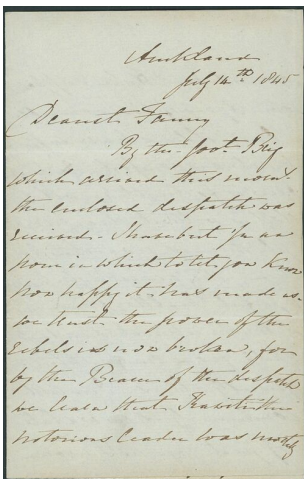 Auckland
July 14th 1845
Dearest Fanny
By the Govt. Brig
which arrived this morng.
the enclosed despatch was
received. I have but ½ an
hour in which to let you know
how happy it has made us.
we trust the power of the
rebels is now broken, for
by the Bearer of the despatch
we learn that Kawiti the
notorious leader was mortly